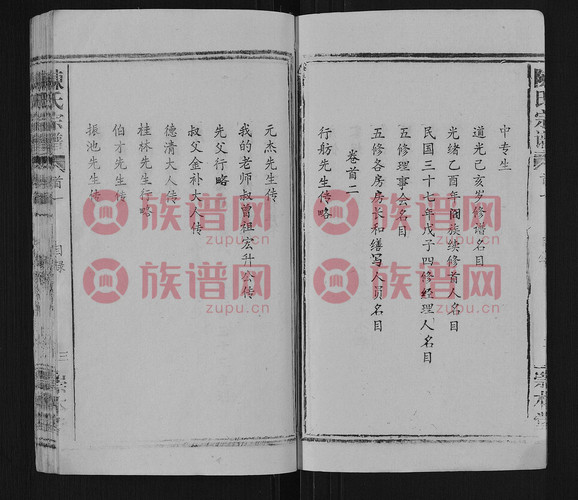 陳氏宗譜
中专生
道光己亥岁修谱名目
光绪乙酉年阖族续修首人名目
民国三十七年戊子四修经理人名目
五修理事会名目
五修各房房长和缮写人员名目
卷首二
行舫先生传略
元杰先生传
我的老师叔曾祖宏升公传
先父行略
叔父金补大人传
德清大人传
桂林先生行略
伯才先生传
振池先生传
陳氏宗譜
首一
目录
三
族谱网
www.zupu.cn
族谱网
www.zupu.cn
族谱网
www.zupu.cn
族谱网
www.zupu.cn
族谱网
www.zupu.cn
族谱网
www.zupu.cn